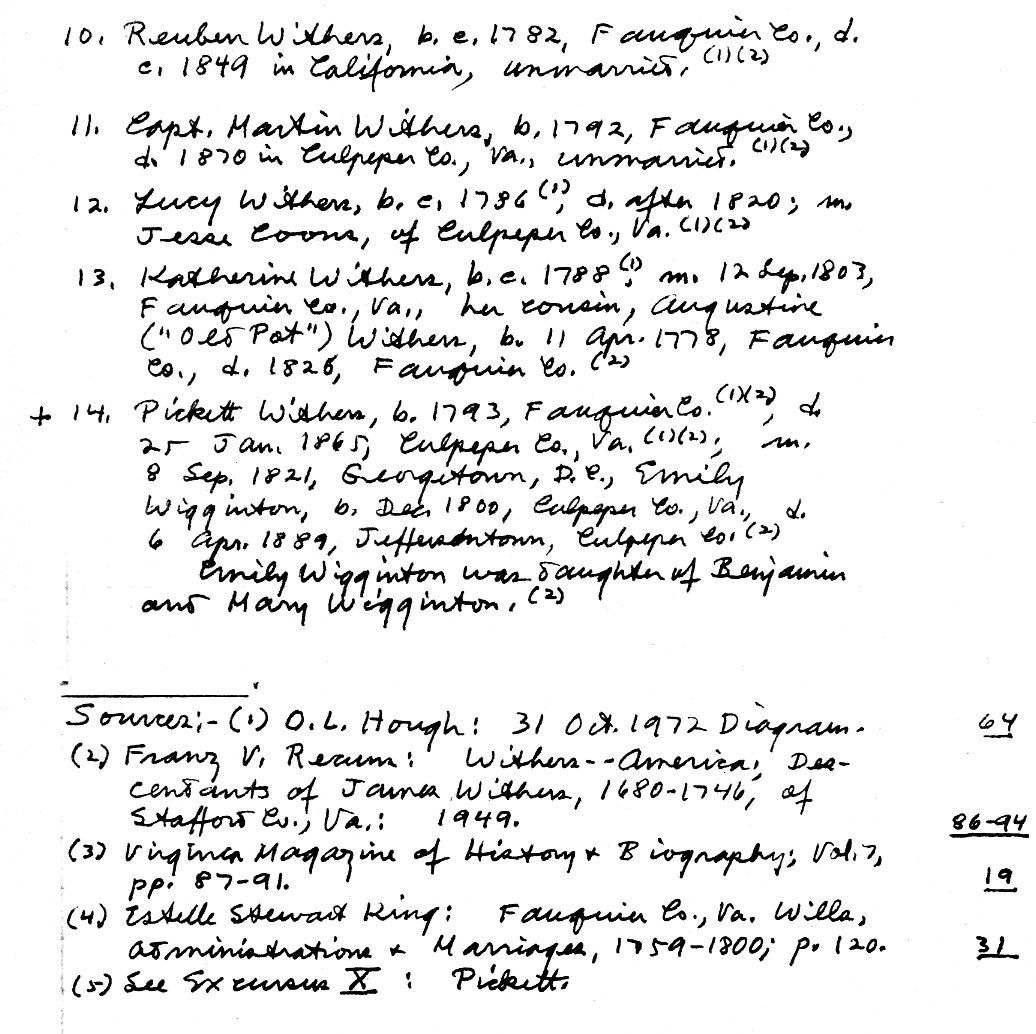 10. Reuben Withers, b. c. 1782, Fauquier Co., d.
c. 1849 in California, unmarried. (1)(2)
11. Capt. Martin Withers, b. 1792, Fauquier Co.,
d. 1870 in Culpeper Co., Va., unmarried. (1)(2)
12. Lucy Withers, b. c. 1786 (1); d. after 1820; m.
Jesse Coons, of Culpeper Co., Va. (1)(2)
13. Katherine Withers, b. c. 1788 (1); m. 12 Sep. 1803,
Fauquier Co., Va., her cousin, Augustine
("Old Pot") Withers, b. 11 Apr. 1778, Fauquier
Co., d. 1826, Fauquier Co. (2)
+ 14. Pickett Withers, b. 1793, Fauquier Co. (1)(2), d.
25 Jan. 1865, Culpeper Co., Va. (1)(2); m.
8 Sep. 1821, Georgetown, D.C., Emily
Wigginton, b. Dec. 1800, Culpeper Co., Va., d.
6 Apr. 1889, Jeffersontown, Culpeper Co. (2)
Emily Wigginton was daughter of Benjamin
and Mary Wigginton. (2)
Sources:- (1) O.L. Hough: 31 Oct. 1972 Diagram. 64
(2) Franz V. Recum: Withers--America; Des-
cendants of James Withers, 1680-1746, of
Stafford Co., Va.: 1949. 86-94
(3) Virginia Magazine of History & Biography; Vol. 7,
pp. 87-91. 19
(4) Estelle Stewart King: Fauquier Co., Va. Wills,
Administrations & Marriages, 1759-1800; p. 120. 31
(5) See Excursus X : Pickett.